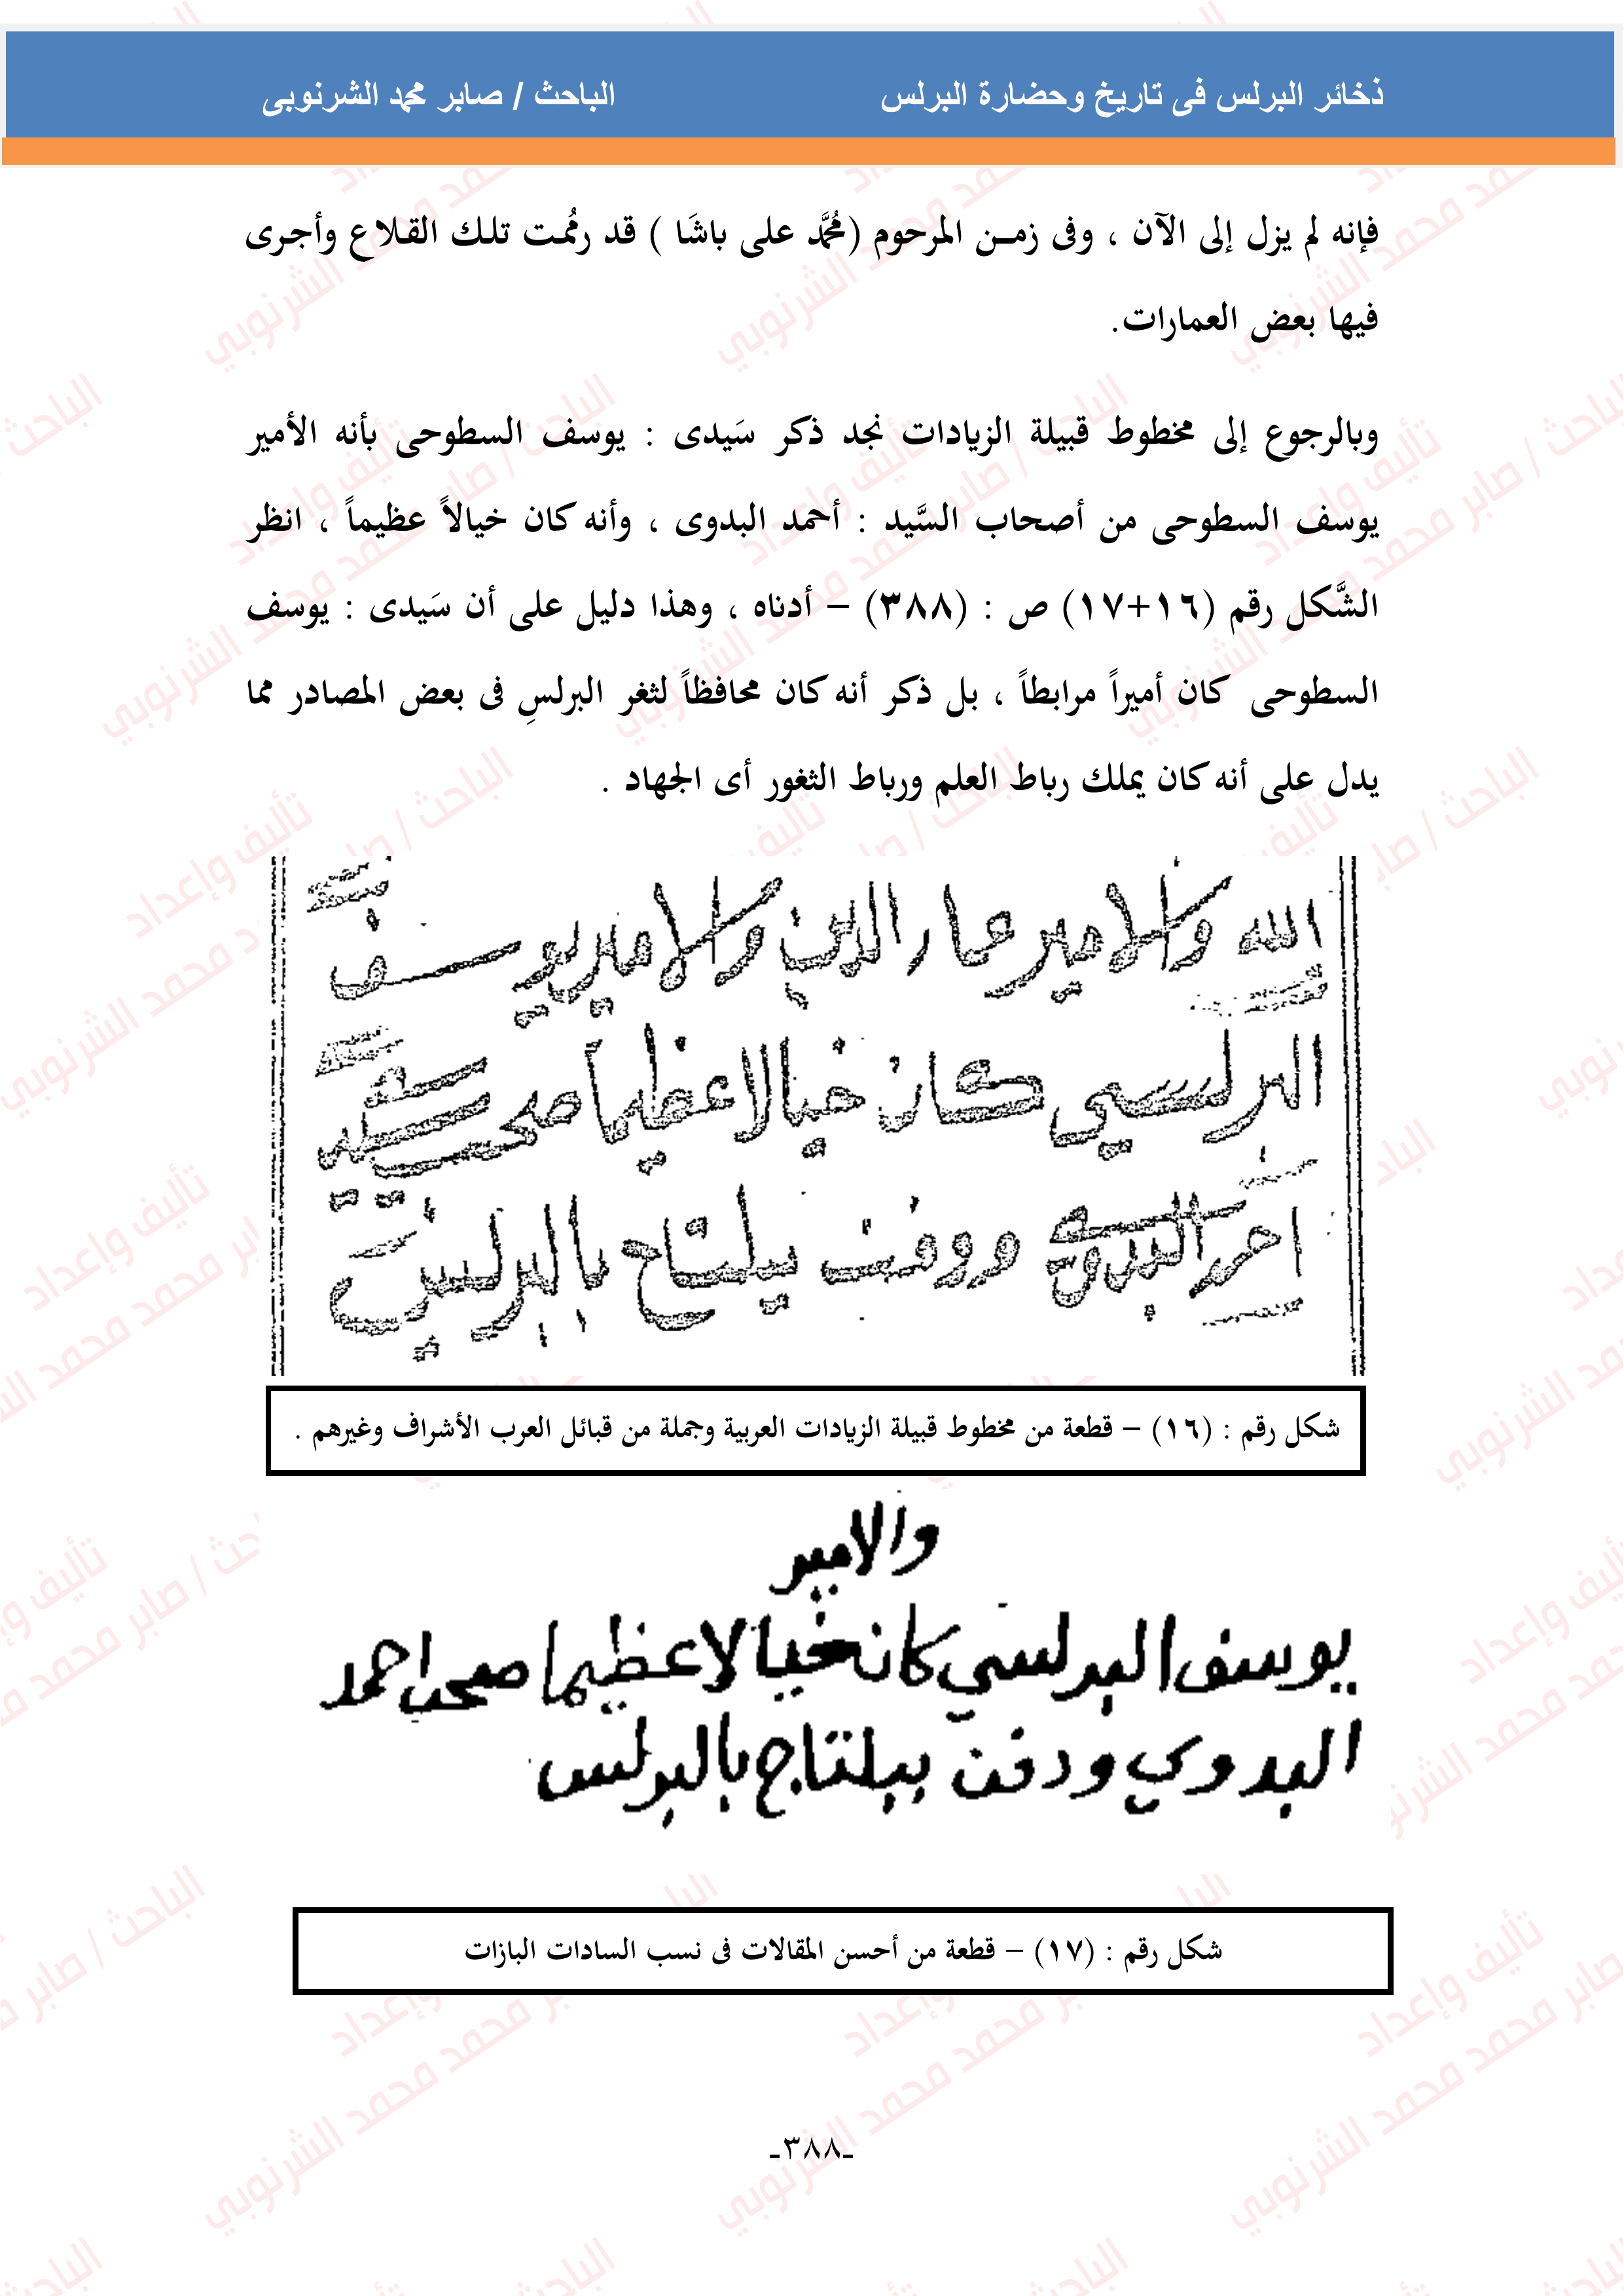 ذخائر البرلس فى تاريخ وحضارة البرلس الباحث / صابر محمد الشرنوبى
فإنه لم يزل إلى الآن ، وفى زمـن المرحوم (مُحمَّد على باشَا ) قد رمُمت تلك القلاع وأجرى
فيها بعض العمارات.
وبالرجوع إلى مخطوط قبيلة الزيادات نجد ذكر سَيدى : يوسف السطوحى بأنه الأمير
يوسف السطوحى من أصحاب السَّيد : أحمد البدوى ، وأنه كان خيالاً عظيماً ، انظر
الشَّكل رقم (١٦+١٧) ص : (٣٨٨) – أدناه ، وهذا دليل على أن سَيدى : يوسف
السطوحى كان أميراً مرابطاً ، بل ذكر أنه كان محافظاً لثغر البرلسِ فى بعض المصادر مما
يدل على أنه كان يملك رباط العلم ورباط الثغور أى الجهاد .
الله والامير عمار الدين والامير يوسف
البرلسي كان خيالا عظيما صحب
احمد البدوي ودفن ببلتاج بالبرلس
شكل رقم : (١٦) – قطعة من مخطوط قبيلة الزيادات العربية وجملة من قبائل العرب الأشراف وغيرهم .
والامير
يوسف البرلسي كان خيالا عظيما صحب احمد
البدوي ودفن ببلتاج بالبرلس
شكل رقم : (١٧) – قطعة من أحسن المقالات فى نسب السادات البازات
-٣٨٨-
تأليف وإعداد
الباحث / صابر محمد محمد الشرنوبي